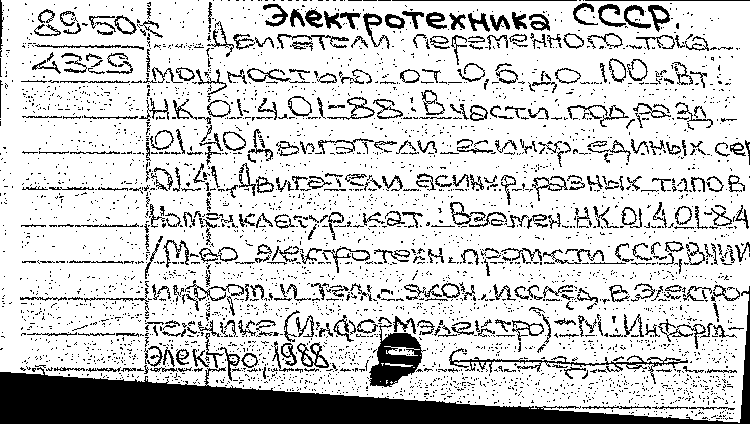 Электротехника СССР.
89-50к
Двигатели переменного тока
4329
мощностью от 0,6 до 100 кВт:
НК 01.4.01-88: В части подразд
01.40 Двигатели асинхр. единых сер
01.41 Двигатели асинхр. разных типов
Номенклатур. кат.: Взамен НК 01.4.01-84
/М-во электротехн. пром-сти СССР, ВНИИ
информ. и техн.-экон. исслед. в электро-
технике (Информэлектро)-М.: Информ-
электро, 1988.
См. след. карт.